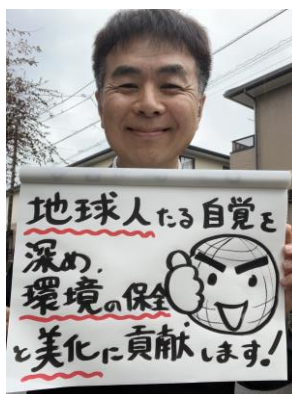 地球人たる自覚を
深め、
環境の保全
と美化に貢献します!